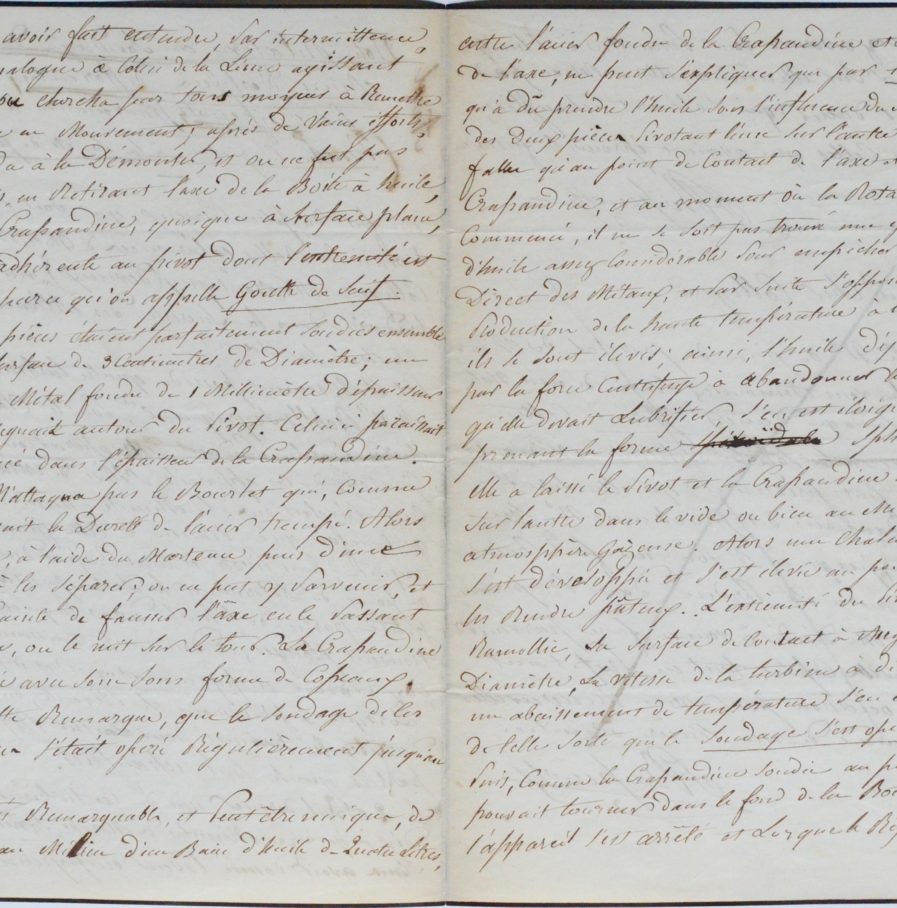 avoir fait entendre, par intermittence
à Celui de la Lime agissant
chercha par tous moyens à Remettre
en Mouvement; après de Vains efforts,
à la Démonter, et on ne fut pas
en Retirant l'axe de la Boite à huile,
Crapaudine, quoique à Surface plane,
adhérente au pivot dont l'extremité est
parce qu'on appelle Goutte de Suif.
pièces étaient parfaitement Soudées ensemble
de 3 Centimètres de Diamètre; un
Métal fondu de 1 Millimètre d'épaisseur
autour du Pivot. Celui-ci paraissait
dans l'épaisseur de la Crapaudine.
N'attaqua pas le Bourlet qui, Comme
la Dureté de l'acier trempé. Alors
, à l'aide du Marteau puis d'une
à les Séparer; on ne put y Parvenir, et
de fausser l'axe en le Passant
, on le mit Sur le tour. La Crapaudine
avec Soin Sous forme de Copeaux.
Remarque, que le Soudage de les
S'était opéré Régulièrement jusqu'au
Remarquable, et Peut être unique, de
au Milieu d'un Bain d'huile de Quatre Litres,
entre l'acier fondu de la Crapaudine et
de l'axe, ne peut S'expliquer que par
qu'a dû prendre l'huile Sous l'influence du
des deux pièces Pivotant l'une Sur l'autre
fallu qu'au point de Contact de l'axe et
Crapaudine, et au moment où la Rota
Commencé, il ne Se Soit pas trouvé une
d'huile assez Considérable pour empêcher
Direct des Métaux, et par Suite S'oppos
Production de la haute température à
ils Se Sont élevés: ainsi, l'huile
par la force Centrifuge à abandonner
qu'elle devait Lubrifier, S'en est éloig
prenant la forme Sph
elle a laissé le Pivot et la Crapaudine
Sur l'autre dans le vide ou bien au
atmosphère Gazeuse. Alors une Chal
S'est développée et S'est élevée au
les Rendre pâteux. L'extrémité du Piv
Ramollie, Sa Surface de Contact à Aug
Diamètre, La Vitesse de la turbine à
un abaissement de température S'en
de telle Sorte que le Soudage S'est opé
Puis, Comme la Crapaudine Soudée au
pouvait tourner dans le fond de la Boi
l'appareil S'est arrêté et Lorsque le